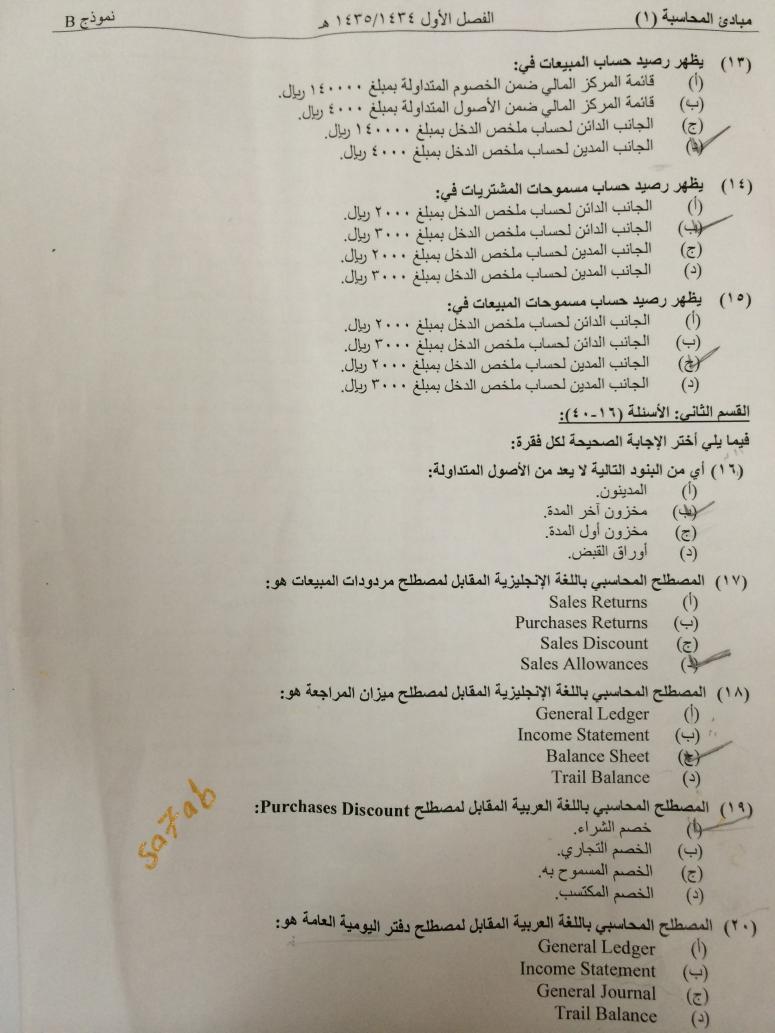 مبادئ المحاسبة (١) الفصل الأول ١٤٣٥/١٤٣٤ هـ نموذج B
(١٣) يظهر رصيد حساب المبيعات في:
(أ) قائمة المركز المالي ضمن الخصوم المتداولة بمبلغ ١٤٠٠٠٠ ريال.
(ب) قائمة المركز المالي ضمن الأصول المتداولة بمبلغ ٤٠٠٠ ريال.
(ج) الجانب الدائن لحساب ملخص الدخل بمبلغ ١٤٠٠٠٠ ريال.
(د) الجانب المدين لحساب ملخص الدخل بمبلغ ٤٠٠٠ ريال.
(١٤) يظهر رصيد حساب مسموحات المشتريات في:
(أ) الجانب الدائن لحساب ملخص الدخل بمبلغ ٢٠٠٠ ريال.
(ب) الجانب الدائن لحساب ملخص الدخل بمبلغ ٣٠٠٠ ريال.
(ج) الجانب المدين لحساب ملخص الدخل بمبلغ ٢٠٠٠ ريال.
(د) الجانب المدين لحساب ملخص الدخل بمبلغ ٣٠٠٠ ريال.
(١٥) يظهر رصيد حساب مسموحات المبيعات في:
(أ) الجانب الدائن لحساب ملخص الدخل بمبلغ ٢٠٠٠ ريال.
(ب) الجانب الدائن لحساب ملخص الدخل بمبلغ ٣٠٠٠ ريال.
(ج) الجانب المدين لحساب ملخص الدخل بمبلغ ٢٠٠٠ ريال.
(د) الجانب المدين لحساب ملخص الدخل بمبلغ ٣٠٠٠ ريال.
القسم الثاني: الأسئلة (١٦-٤٠):
فيما يلي أختر الإجابة الصحيحة لكل فقرة:
(١٦) أي من البنود التالية لا يعد من الأصول المتداولة:
(أ) المدينون.
(ب) مخزون آخر المدة.
(ج) مخزون أول المدة.
(د) أوراق القبض.
(١٧) المصطلح المحاسبي باللغة الإنجليزية المقابل لمصطلح مردودات المبيعات هو:
(أ) Sales Returns
(ب) Purchases Returns
(ج) Sales Discount
(د) Sales Allowances
(١٨) المصطلح المحاسبي باللغة الإنجليزية المقابل لمصطلح ميزان المراجعة هو:
(أ) General Ledger
(ب) Income Statement
(ج) Balance Sheet
(د) Trail Balance
(١٩) المصطلح المحاسبي باللغة العربية المقابل لمصطلح Purchases Discount:
(أ) خصم الشراء.
(ب) الخصم التجاري.
(ج) الخصم المسموح به.
(د) الخصم المكتسب.
Sa7ab
(٢٠) المصطلح المحاسبي باللغة العربية المقابل لمصطلح دفتر اليومية العامة هو:
(أ) General Ledger
(ب) Income Statement
(ج) General Journal
(د) Trail Balance